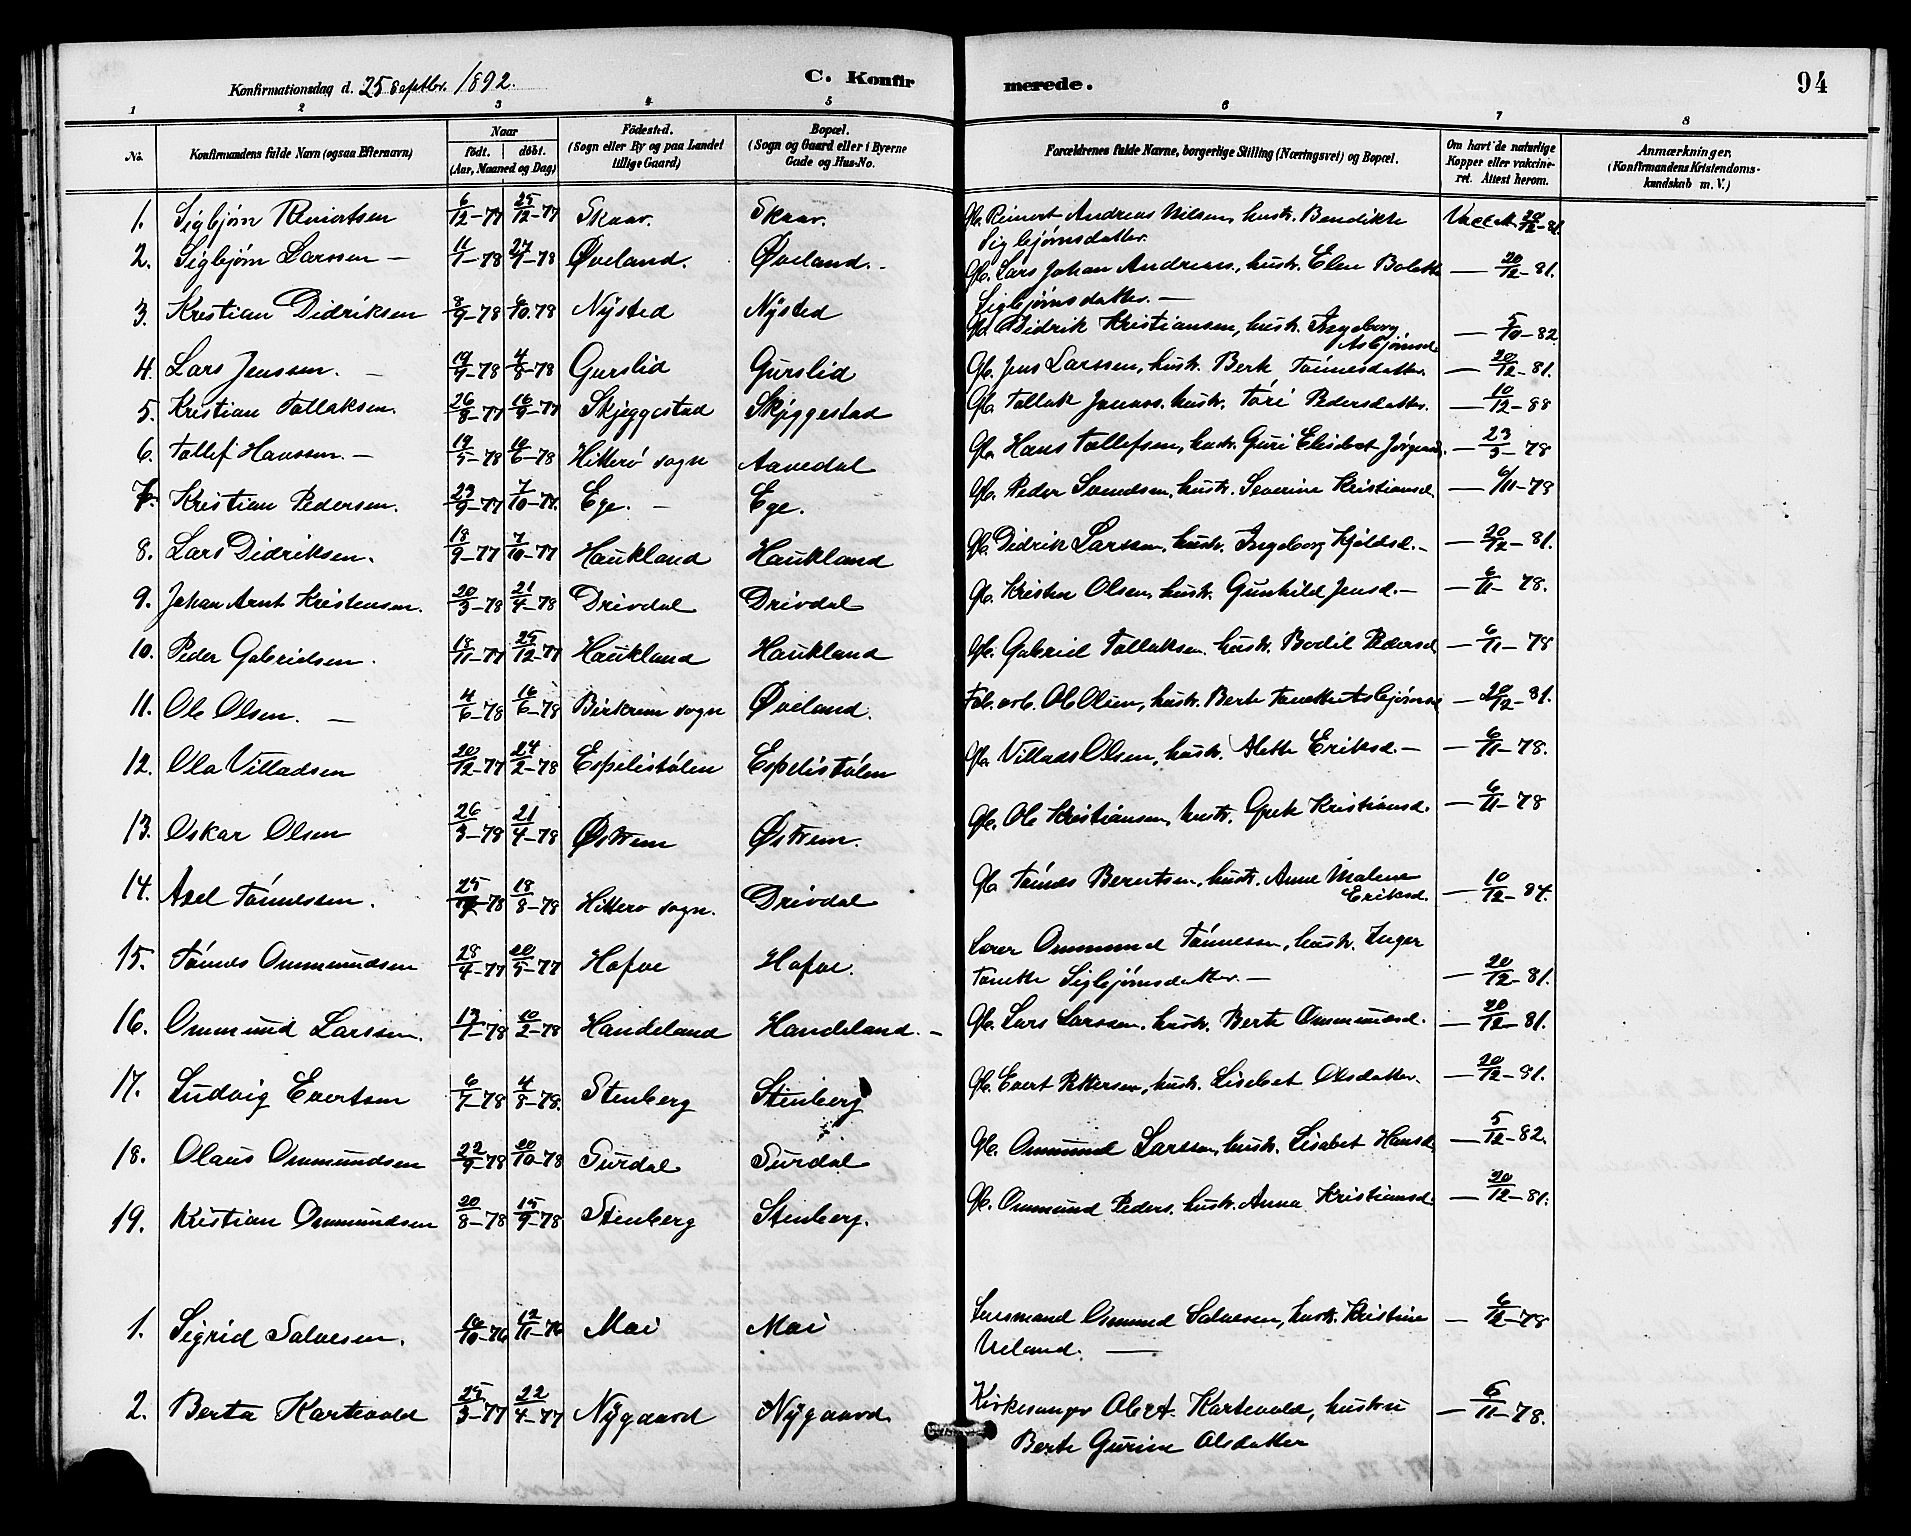 Konfirmationsdag d. 25 septbr. 1892.
C. Konfirmerede.
94
1 2 3 4 5 6 7 8
No. Konfirmandens fulde Navn (ogsaa Efternavn) Naar födt. döbt. (Aar, Maaned og Dag) Födested. (Sogn eller By og paa Landet tillige Gaard) Bopæl. (Sogn og Gaard eller i Byerne Gade og Hus-No. Forældrenes fulde Navne, borgerlige Stilling (Næringsvei) og Bopæl. Om havt de naturlige Kopper eller vakcineret. Attest herom. Anmærkninger. (Konfirmandens Kristendomskundskab m. V.)
1. Sigbjørn Reinertsen 6/12-77 25/12-77 Skaar. Skaar. Gb. Reinert Andreas Nilsen, hustr. Bendikte Vacc. At. 20/12-81.
Sigbjørnsdatter.
2. Sigbjørn Larssen — 11/1-78 27/1-78 Øveland. Øveland. Gb. Lars Johan Andreas., hustr. Elen Bolette — 20/12-81.
Sigbjørnsdatter. —
3. Kristian Didriksen 8/9-78 6/10.78 Nÿsted Nÿsted Gb. Didrik Kristiansen, hustr. Ingeborg — 5/10-82
Asbjørnsd.
4. Lars Jenssen. — 19/7-78 4/8-78 Gurslid Gurslid Gb. Jens Larssen, hustr. Berte Tönnesdatter. — 20/12-81.
5. Kristian Tollaksen. 26/8-77 16/9-77 Skjeggestad Skjeggestad Gb. Tollak Jonass. hustr. Tóri Pedersdatter. — 10/12-88
6. Tollef Hanssen. — 19/5-78 10/6-78 Hitterö sogn Aavedal Gb. Hans Tollefsen, hustr. Guri Elisabet Jörgensd. — 23/5-78
7. Kristian Pedersen. 23/9-77 7/10-77. Ege. — Ege. Gb. Peder Svendsen, hustr. Severine Kristiansd. — 6/11-78
8. Lars Didriksen. 18/9-77 7/10-77 Haukland Haukland Gb. Didrik Larssen, hustr. Ingeborg Kjeldsd. — 20/12-81.
9. Johan Arnt Kristensen. 20/3-78 21/4-78 Drivdal Drivdal Gb. Kristen Olsen, hustr. Gunhild Jensd. — 6/11-78.
10. Peder Gabrielsen. 18/11-77 25/12-77 Haukland Haukland Gb. Gabriel Tollaksen. hustr. Bodil Pedersd — 6/11-78
11. Ole Olsen. — 4/6-78 16/6-78 Birkrem sogn Øveland. Fab. arb. Ole Olsen, hustr. Berte Tonette Asbjørnsd — 20/12-81.
12. Ola Villadsen 20/12-77 24/2-78 Espelistölen Espelistölen Gb. Villads Olsen, hustr. Alette Eriksd. — 6/11-78.
13. Oskar Olsen 26/3-78 21/4-78 Østrem Østrem. Gb. Ole Kristiansen, hustr. Grete Kristiansd. — 6/11-78
14. Axel Tönnessen. 25/7-78 18/8-78 Hitterö sogn. Drivdal Gb. Tönnes Berntsen, hustr. Anne Malene — 10/12-84.
Eriksd.
15. Tönnes Ommundsen 28/4-77 20/5-77 Hafve Hafve. Lærer Ommund Tönnessen, hustr. Inger
Tonette Sigbjørnsdatter. — 20/12-81.
16. Ommund Larssen. 13/1-78 10/2-78 Handeland Handeland. — Gb. Lars Larssen. hustr. Berte Ommundsd. — 20/12-81.
17. Ludvig Evertsen 6/7-78 4/8-78. Stenberg Stenberg Gb. Evert Pettersen, hustr. Lisebet Olsdatter. — 20/12-81.
18. Olaus Ommundsen 22/9-78 20/10-78 Surdal Surdal Gb. Ommund Larssen, hustr. Lisabet Hansd — 5/12-82.
19. Kristian Ommundsen 20/8-78 15/9-78 Stenberg Stenberg. Gb. Ommund Peders. hustr. Anna Kristiansd. — 20/12-81.
1. Sigrid Salvesen. 16/10-76 12/11-76 Moi Moi Lensmand Omund Salvesen, hustr. Kristine — 6/12-78
Ueland. —
2. Berta Kartevold 25/3-77 22/4-77 Nÿgaard Nÿgaard. Kirkesanger Abr. A. Kartevold, hustru — 6/11-78.
Berte Gurine Olsdatter